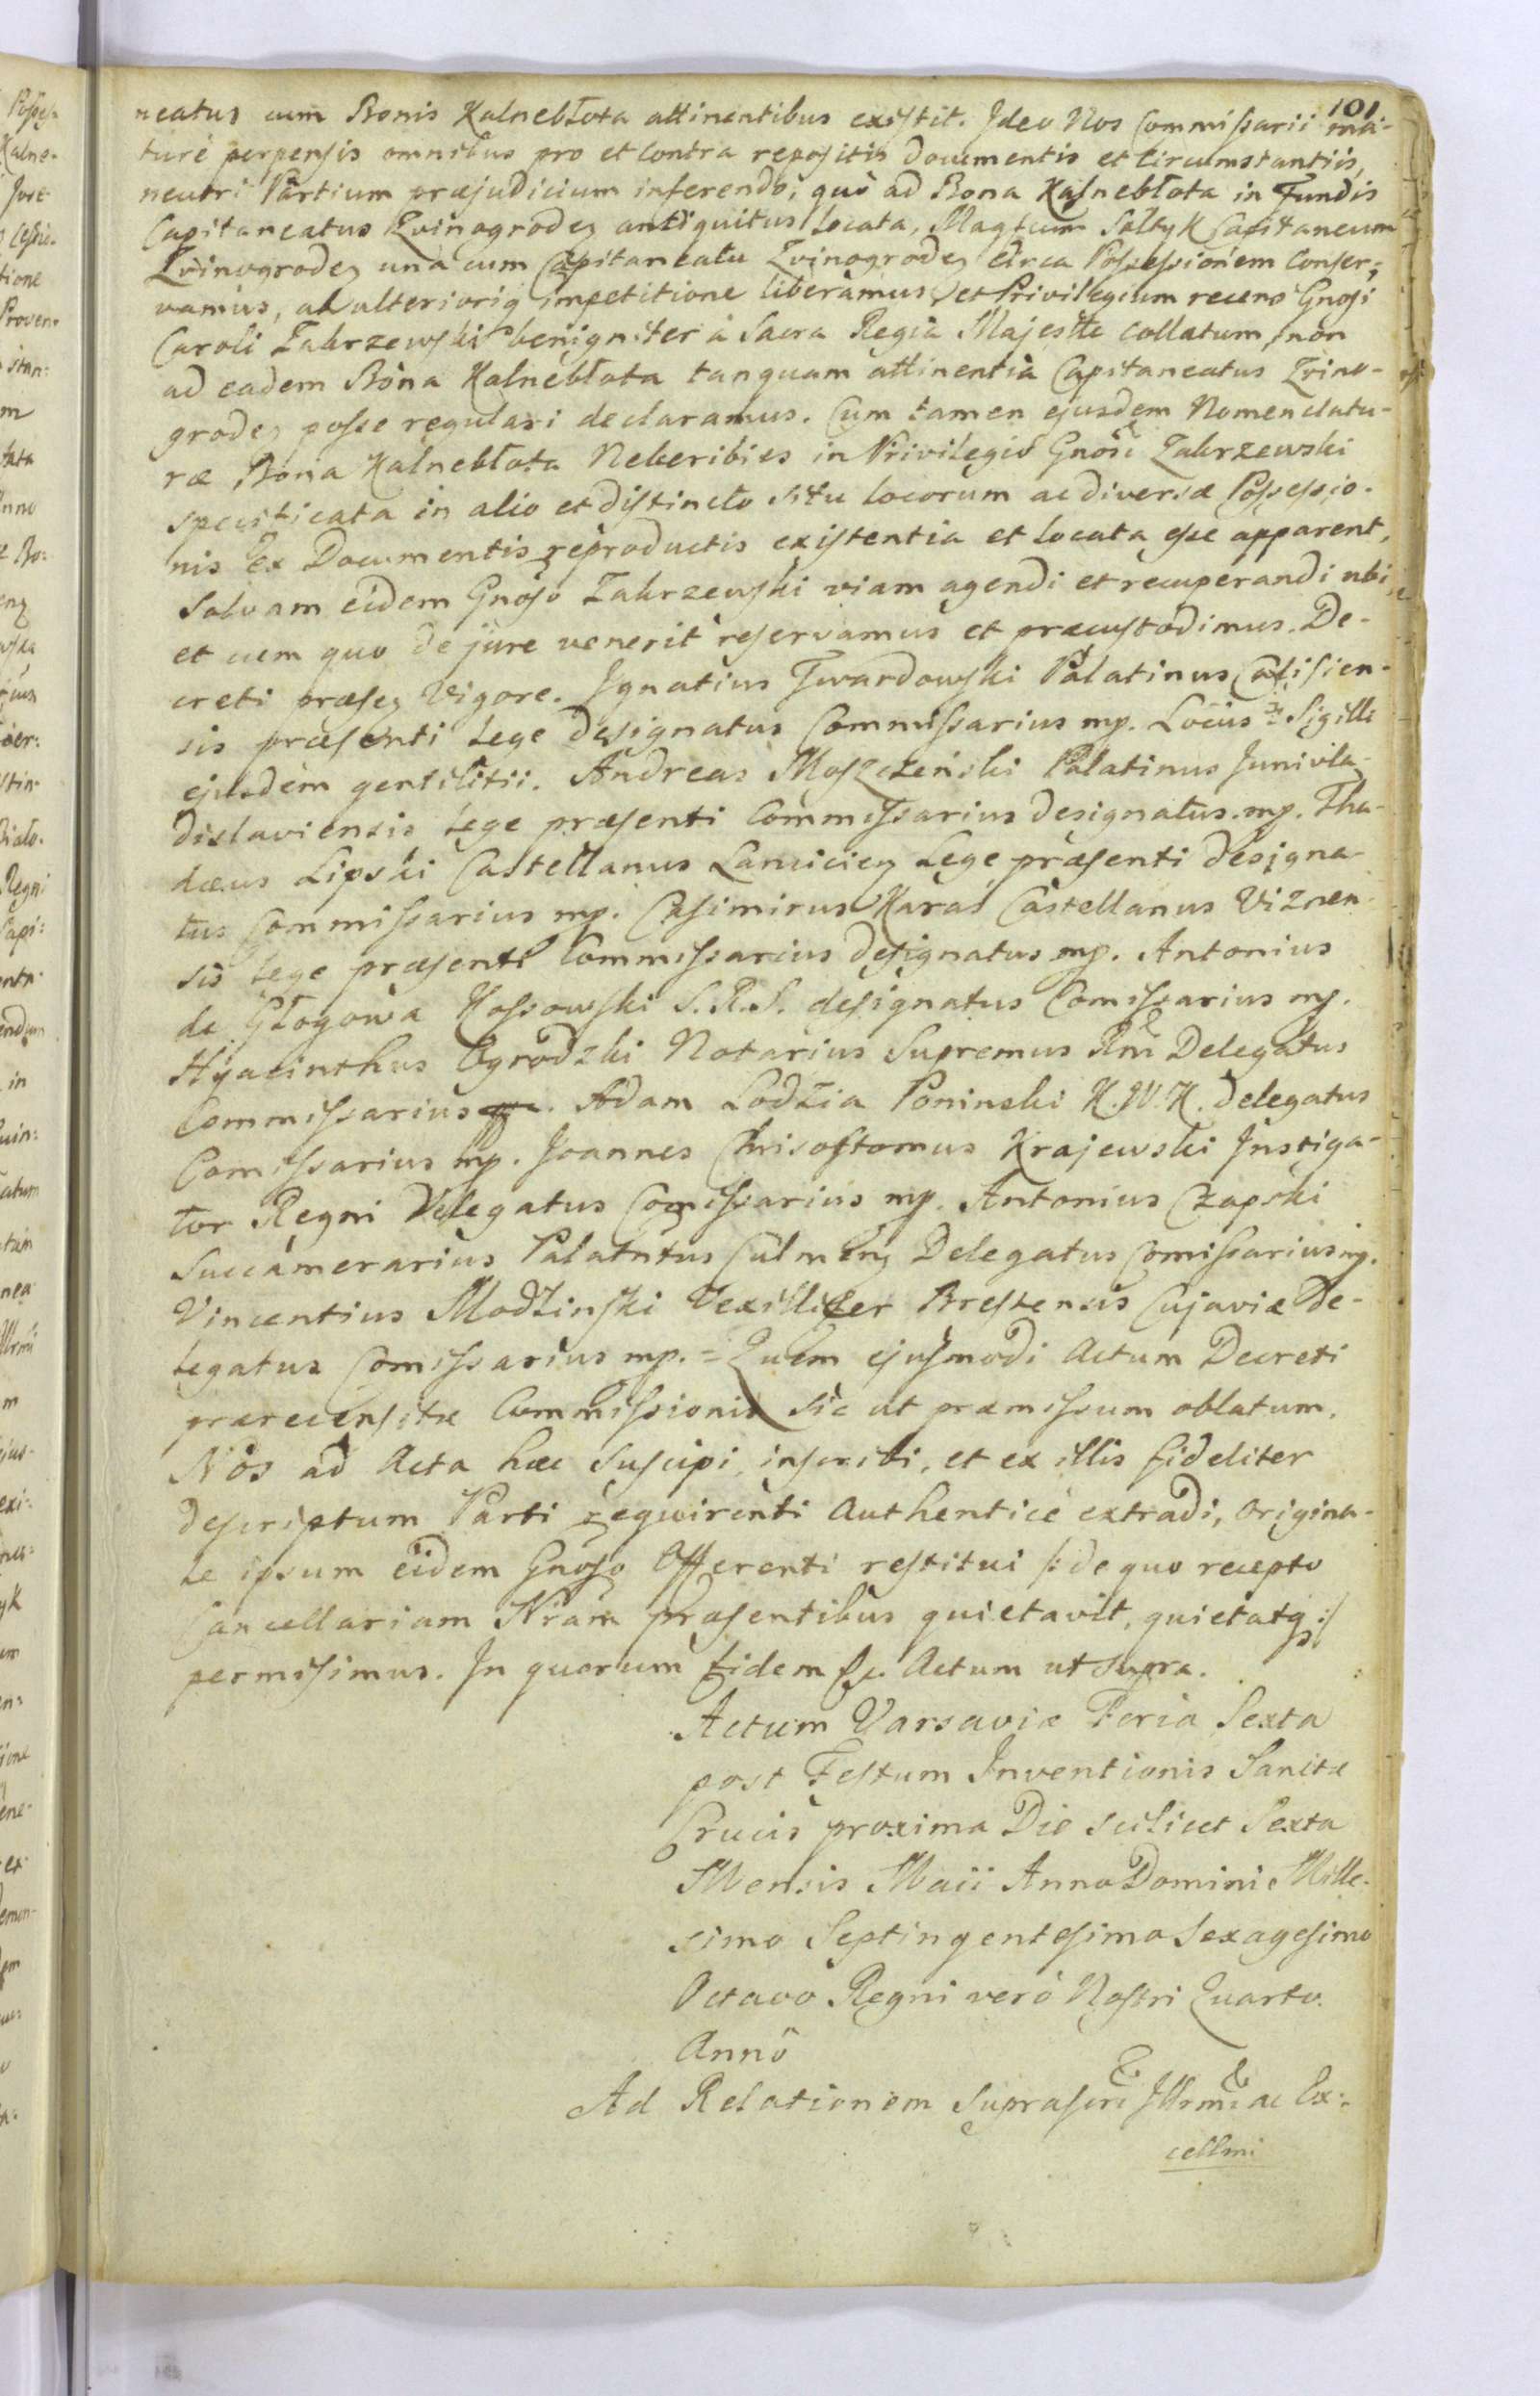 101
neatus cum Bonis Kalnebłota attinentibus existit. Ideo Nos Commissarii ma-
ture perpensis omnibus pro et contra repositis Documentis et Circumstantiis,
neutri Partium præjudicium inferendo; quo ad Bona Kalnebłota in Fundis
Capitaneatus Zvinogrodeȝ antiquitus locata, Magficum Sołtyk Capitaneum
Zvinogrodeȝ una cum Capitaneatu Zvinogrodeȝ circa Possessionem conser-
vamus, ab ulteriori impetitione liberamus, et Privilegium recens Gnosi
Caroli Zakrzewski benigniter à Sacra Regia Majestte collatum, non
ad eadem Bona Kalnebłota tanquam attinentia Capitaneatus Zvino-
grodeȝ posse regulari declaramus. Cum tamen ejusdem Nomenclatu-
ræ Bona Kalnebłota Neberibies in Privilegio Gnosi Zakrzewski
specificata in alio et distincto situ locorum ac diversæ Possessio-
nis ex Documentis reproductis existentia et locata esse apparent,
Salvam eidem Gnoso Zakrzewski viam agendi et recuperandi ubi,
et cum quo de jure venerit reservamus et præcustodimus. De-
creti præseȝ vigore. Ignatius Twardowski Palatinus Calisien-
sis præsenti Lege designatus Commissarius mp. Locus Sigilli
ejusdem gentilitii. Andreas Moszczeński Palatinus Junivla-
dislaviensis Lege præsenti Commissarius designatus. mp. Tha-
dæus Lipski Castellanus Lancicieȝ Lege præsenti designa-
tus Commissarius mp. Casimirus Karaś CastellanusViznen-
sis Lege præsenti Commissarius designatus mp. Antonius
de Głogowa Kossowski S.R.S. designatus Comissarius mp.
Hyacinthus Ogrodzki Notarius Supremus Rni Delegatus
Commissarius. Adam Lodzia Poninski K.W.K. delegatus
Comissarius mp. Joannes Chrisostomus Krajewski Instiga-
tor Regni Delegatus Comissarius mp. Antonius Czapski
Succamerarius Palatntus Culmenȝ Delegatus Comissarius mp.
Vincentius Modzinski Vexillifer Brestensis Cujaviæ De-
legatus Comissarius mp. = Quem ejusmodi Actum Decreti
præcensitæ Commissionis sic ut præmissum oblatum,
Nos ad Acta hæc suscipi, inscribi, et ex illis fideliter
descriptum Parti reqwirenti Authentice extradi, Origina-
le ipsum eidem Gnoso Offerenti restitui /: de quo recepto
Cancellariam Nram præsentibus quietavit, quietatq :/
permisimus. In quorum fidem &c. Actum ut supra.
Actum Varsaviæ Feria Sexta
post Festum Inventionis Sanctæ
Crucis proxima Die scilicet Sexta
Mensis Maii Anno Domini Mille-
simo Septingentesimo Sexagesimo
Octavo Regni verò Nostri Quarto.
Annô
Ad Relationem suprascri Illrmi ac Ex-
cellmi